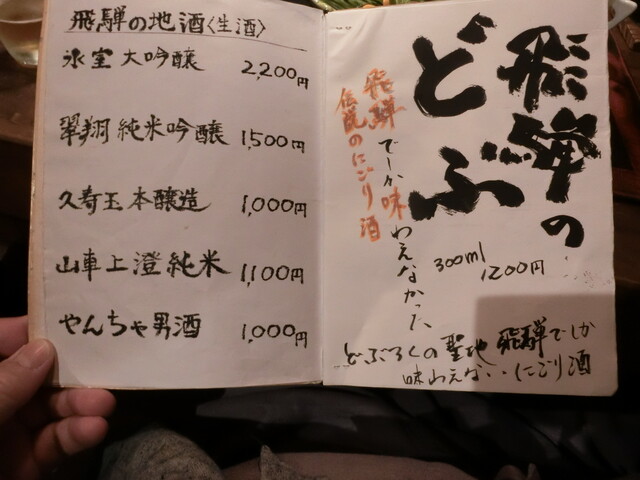 飛騨の地酒〈生酒〉
氷室 大吟醸 2,200円
翠翔 純米吟醸 1,500円
久寿玉 本醸造 1,000円
山車 上澄 純米 1,100円
やんちゃ男酒 1,000円
飛騨の
どぶ
飛騨でしか味わえなかった、
伝説のにごり酒
300ml
1200円
どぶろくの聖地 飛騨でしか
味わえない‥にごり酒